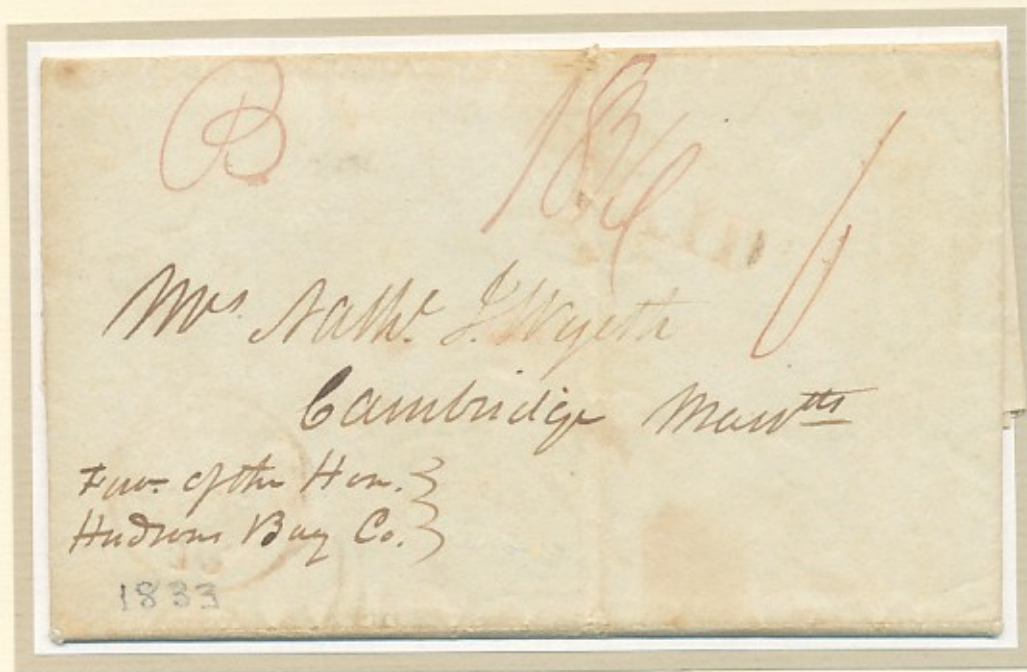 B 18¾
Mrs. Nathl. J. Wyeth
Cambridge Massts
Fav. of the Hon.
Hudsons Bay Co.
1833